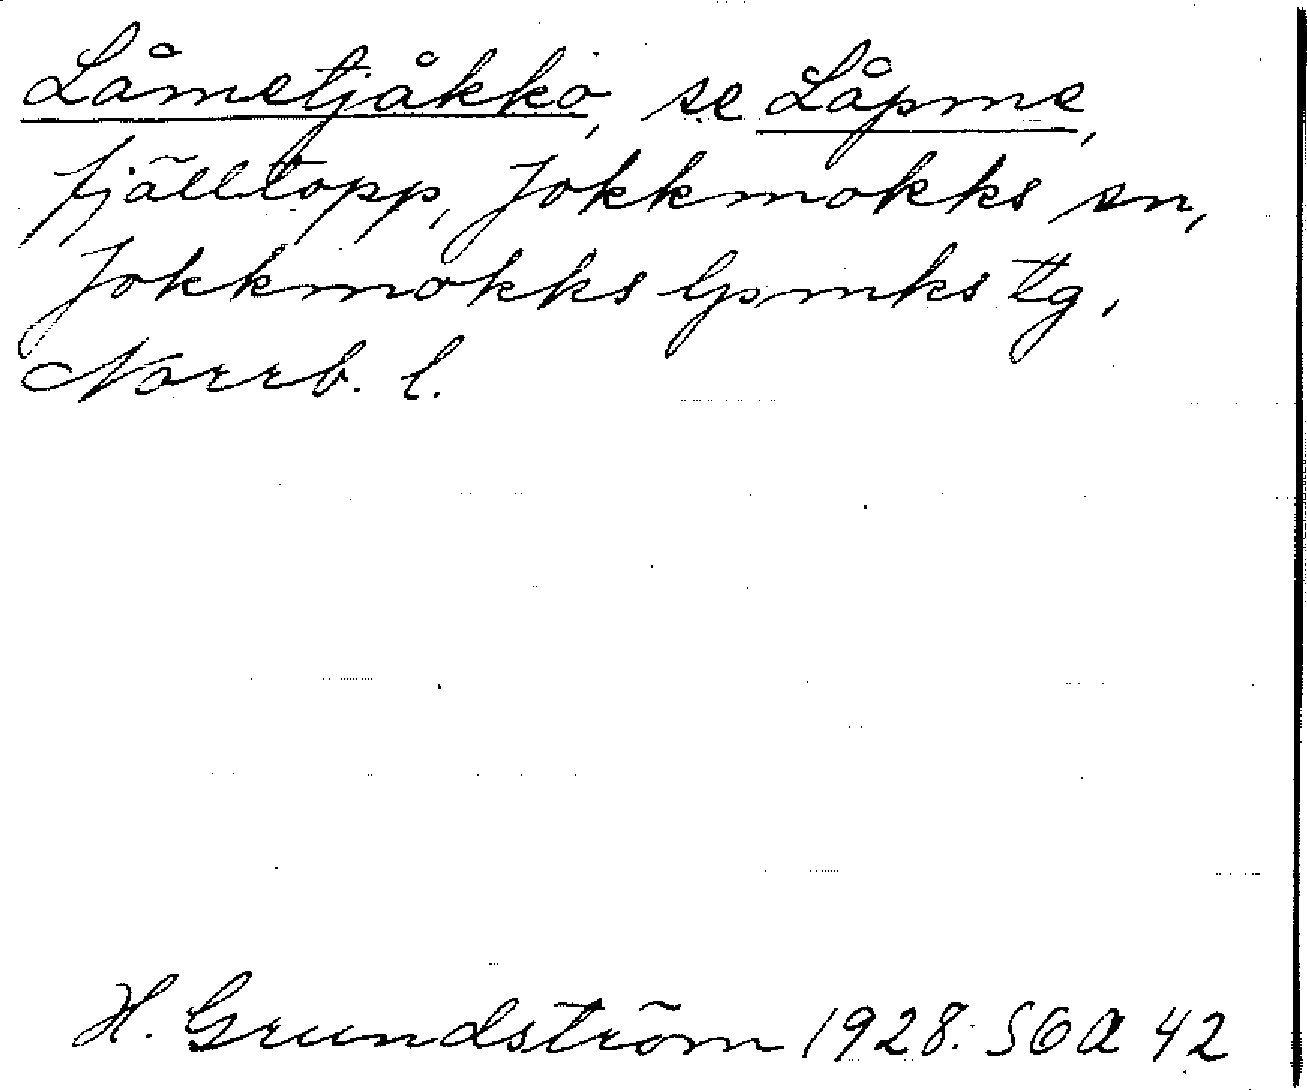 Låmetjåkko, se Låpme,
fjälltopp, Jokkmokks sn,
Jokkmokks lpmks tg,
Norrb. l.
H. Grundström 1928. SGA 42